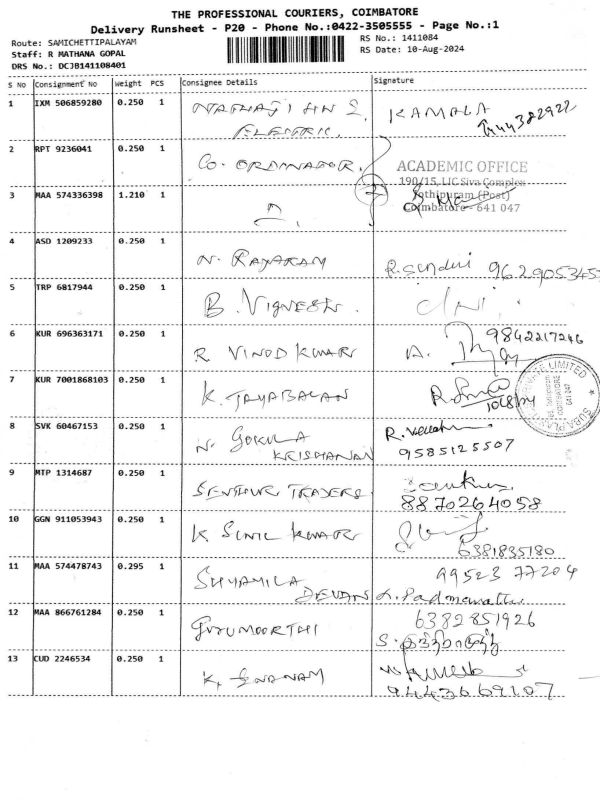 THE PROFESSIONAL COURIERS, COIMBATORE
Delivery Runsheet - P20 - Phone No.:0422-3505555 - Page No.:1
Route: SAMICHETTIPALAYAM
RS No.: 1411084
Staff: R MATHANA GOPAL
RS Date: 10-Aug-2024
DRS No.: DCJB141108401
S No Consignment No Weight PCS Consignee Details Signature
1 IXM 506859280 0.250 1 KAMALA
ELECTRIC.
2 RPT 9236041 0.250 1 CO-ORDINATOR.
ACADEMIC OFFICE
190/15, LIC Siva Complex
Jothipuram (Post)
Coimbatore - 641 047
3 MAA 574336398 1.210 1
4 ASD 1209233 0.250 1 N. RAYARAM 962905345
5 TRP 6817944 0.250 1 B. VIGNESH.
6 KUR 696363171 0.250 1 R VINOD KUMAR A. 9842217246
7 KUR 7001868103 0.250 1 K. JAYABALAN
8 SVK 60467153 0.250 1 N. GOKULA
KRISHANAN
9585125507
9 MTP 1314687 0.250 1 SENTHUR TRADERS.
8870264058
10 GGN 911053943 0.250 1 K SUNIL KUMAR
6381835180
11 MAA 574478743 0.295 1 SHYAMILA 99523 77204
DEVAN
12 MAA 866761284 0.250 1 GURUMOORTHI 6382851926
13 CUD 2246534 0.250 1 K.
9443669107